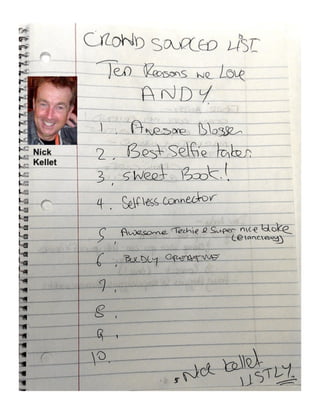 CROWD SOURCED LIST
Ten Reasons we Love
ANDY
1. Awesome Blogger
2. Best Selfie taker
3. Sweet Book!
4. Selfless connector
5. Awesome Techie & Super nice bloke
6. BOLDLY CREATIVE
7.
8.
9.
10.
Nick Kellet
LISTLY
Nick
Kellet